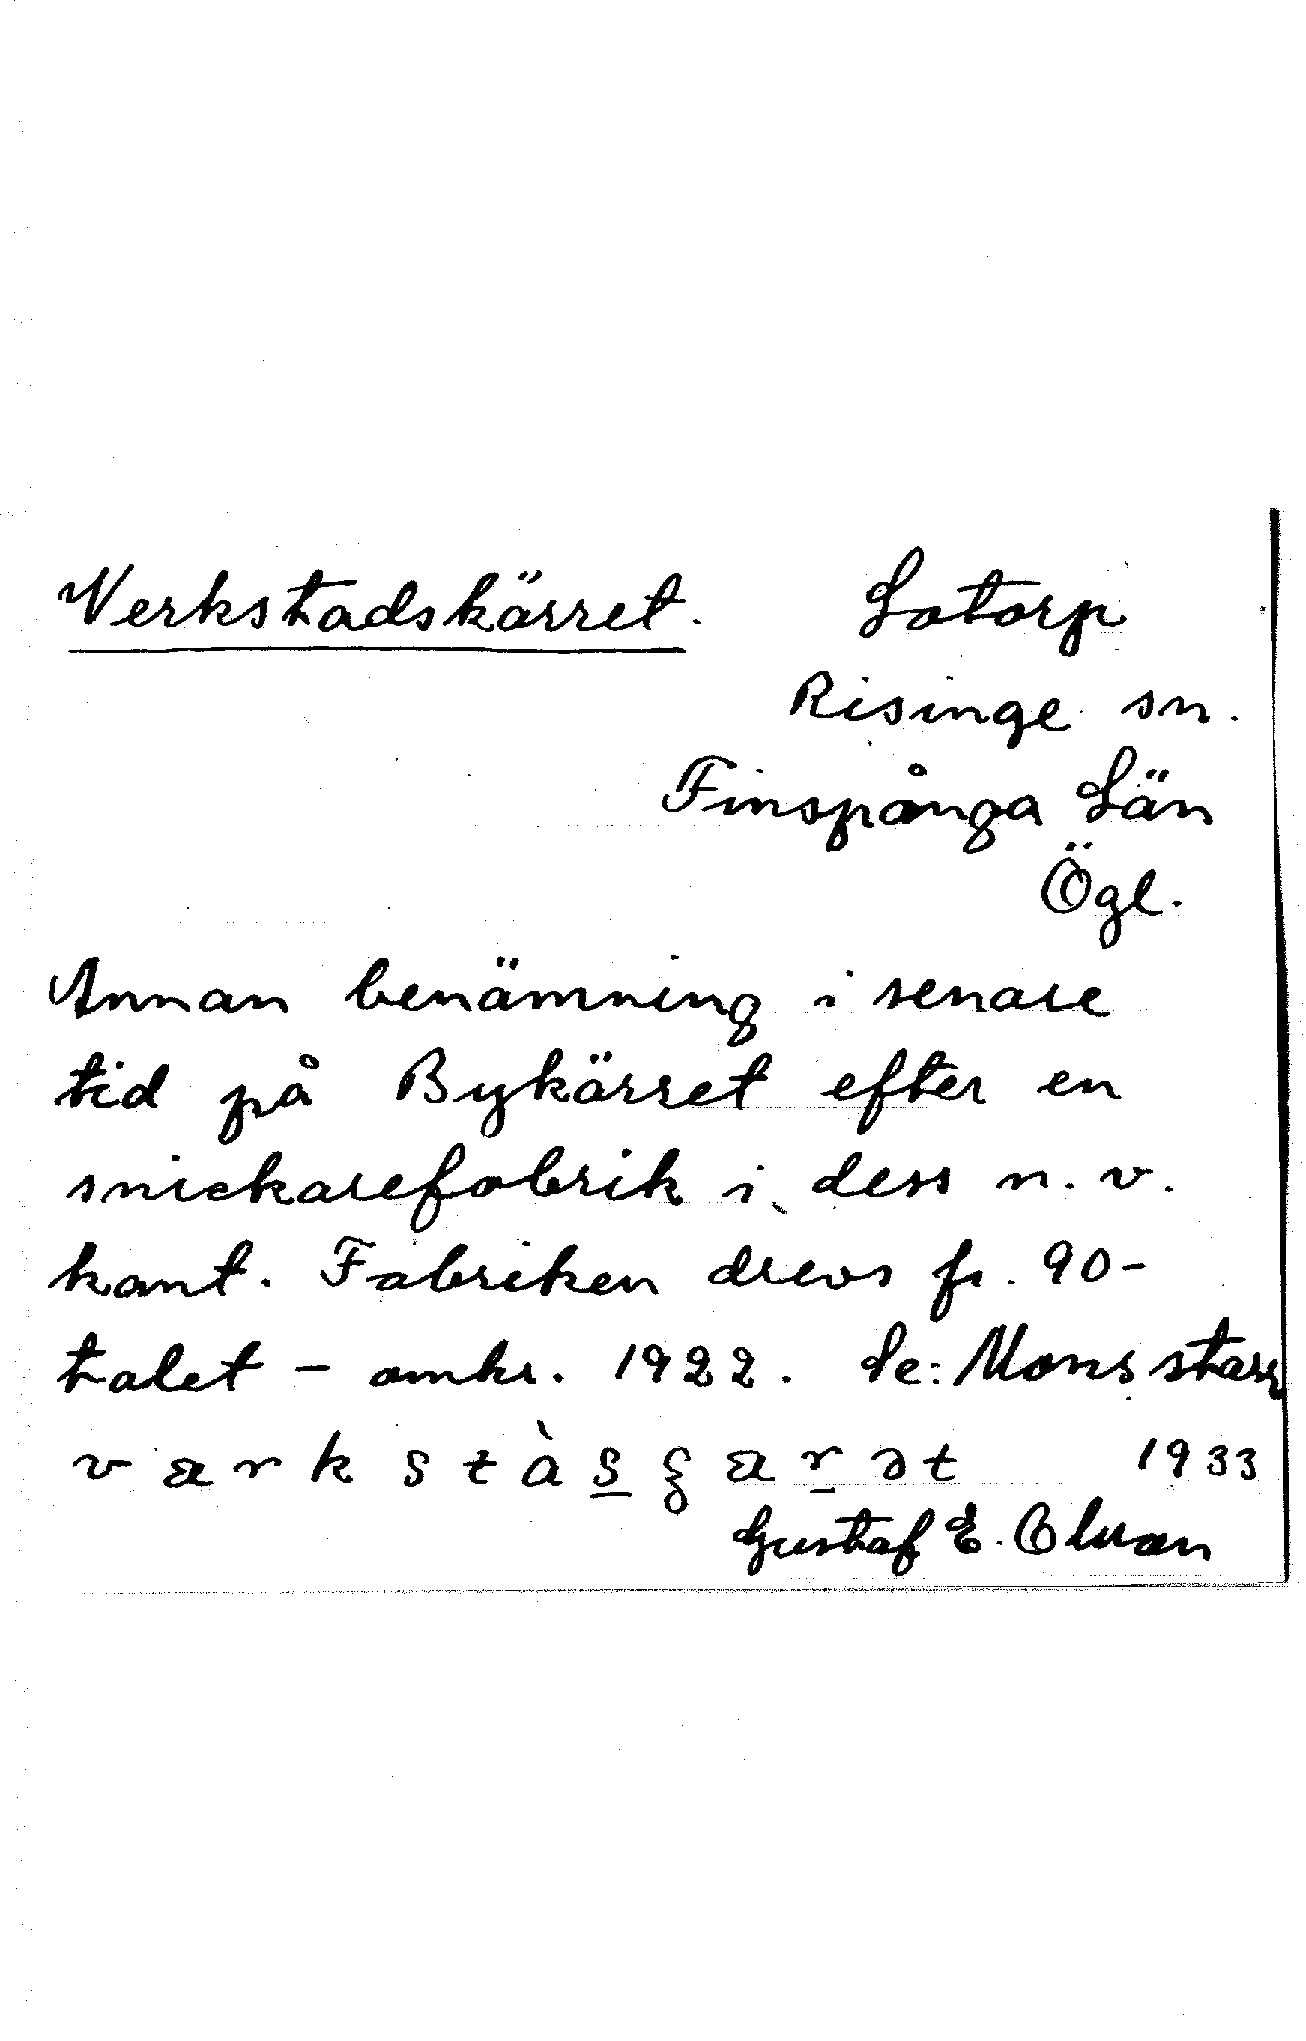 Verkstadskärret. Lotorp
Risinge sn.
Finspånga Län
Ögl.
Annan benämning i senare
tid på Bykärret efter en
snickarefabrik i dess n. v.
kant. Fabriken drevs fr. 90-
talet - omkr. 1922. Se: Monsstarr
värkstàsʂärət 1933
Gustaf E.